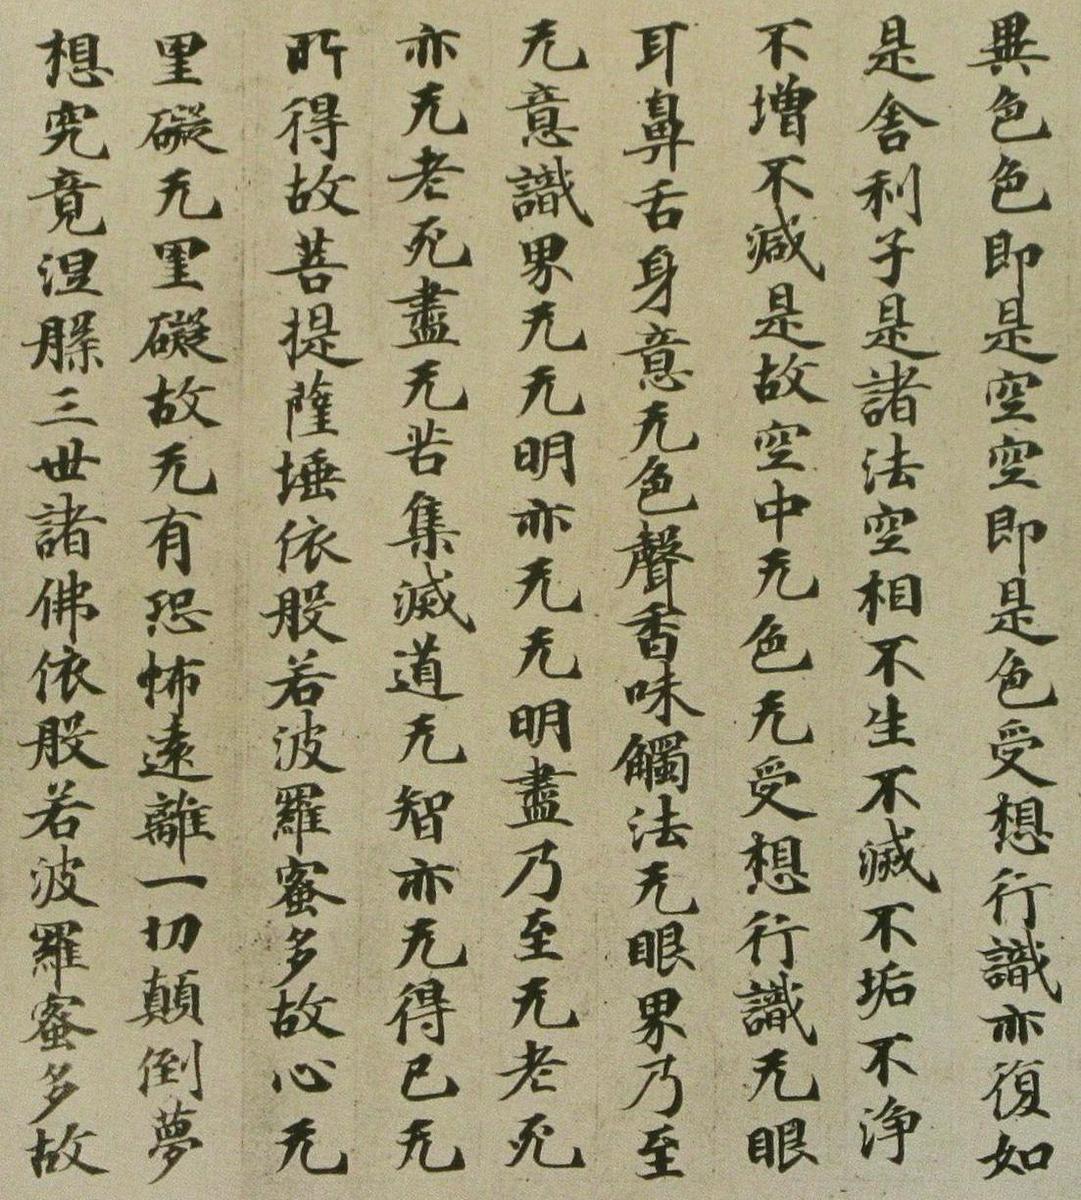 異色色即是空空即是色受想行識亦復如
是舍利子是諸法空相不生不滅不垢不浄
不增不減是故空中无色无受想行識无眼
耳鼻舌身意无色聲香味觸法无眼界乃至
无意識界无无明亦无无明盡乃至无老死
亦无老死盡无苦集滅道无智亦无得已无
所得故菩提薩埵依般若波羅蜜多故心无
罣礙无罣礙故无有恐怖遠離一切顛倒夢
想究竟涅槃三世諸佛依般若波羅蜜多故